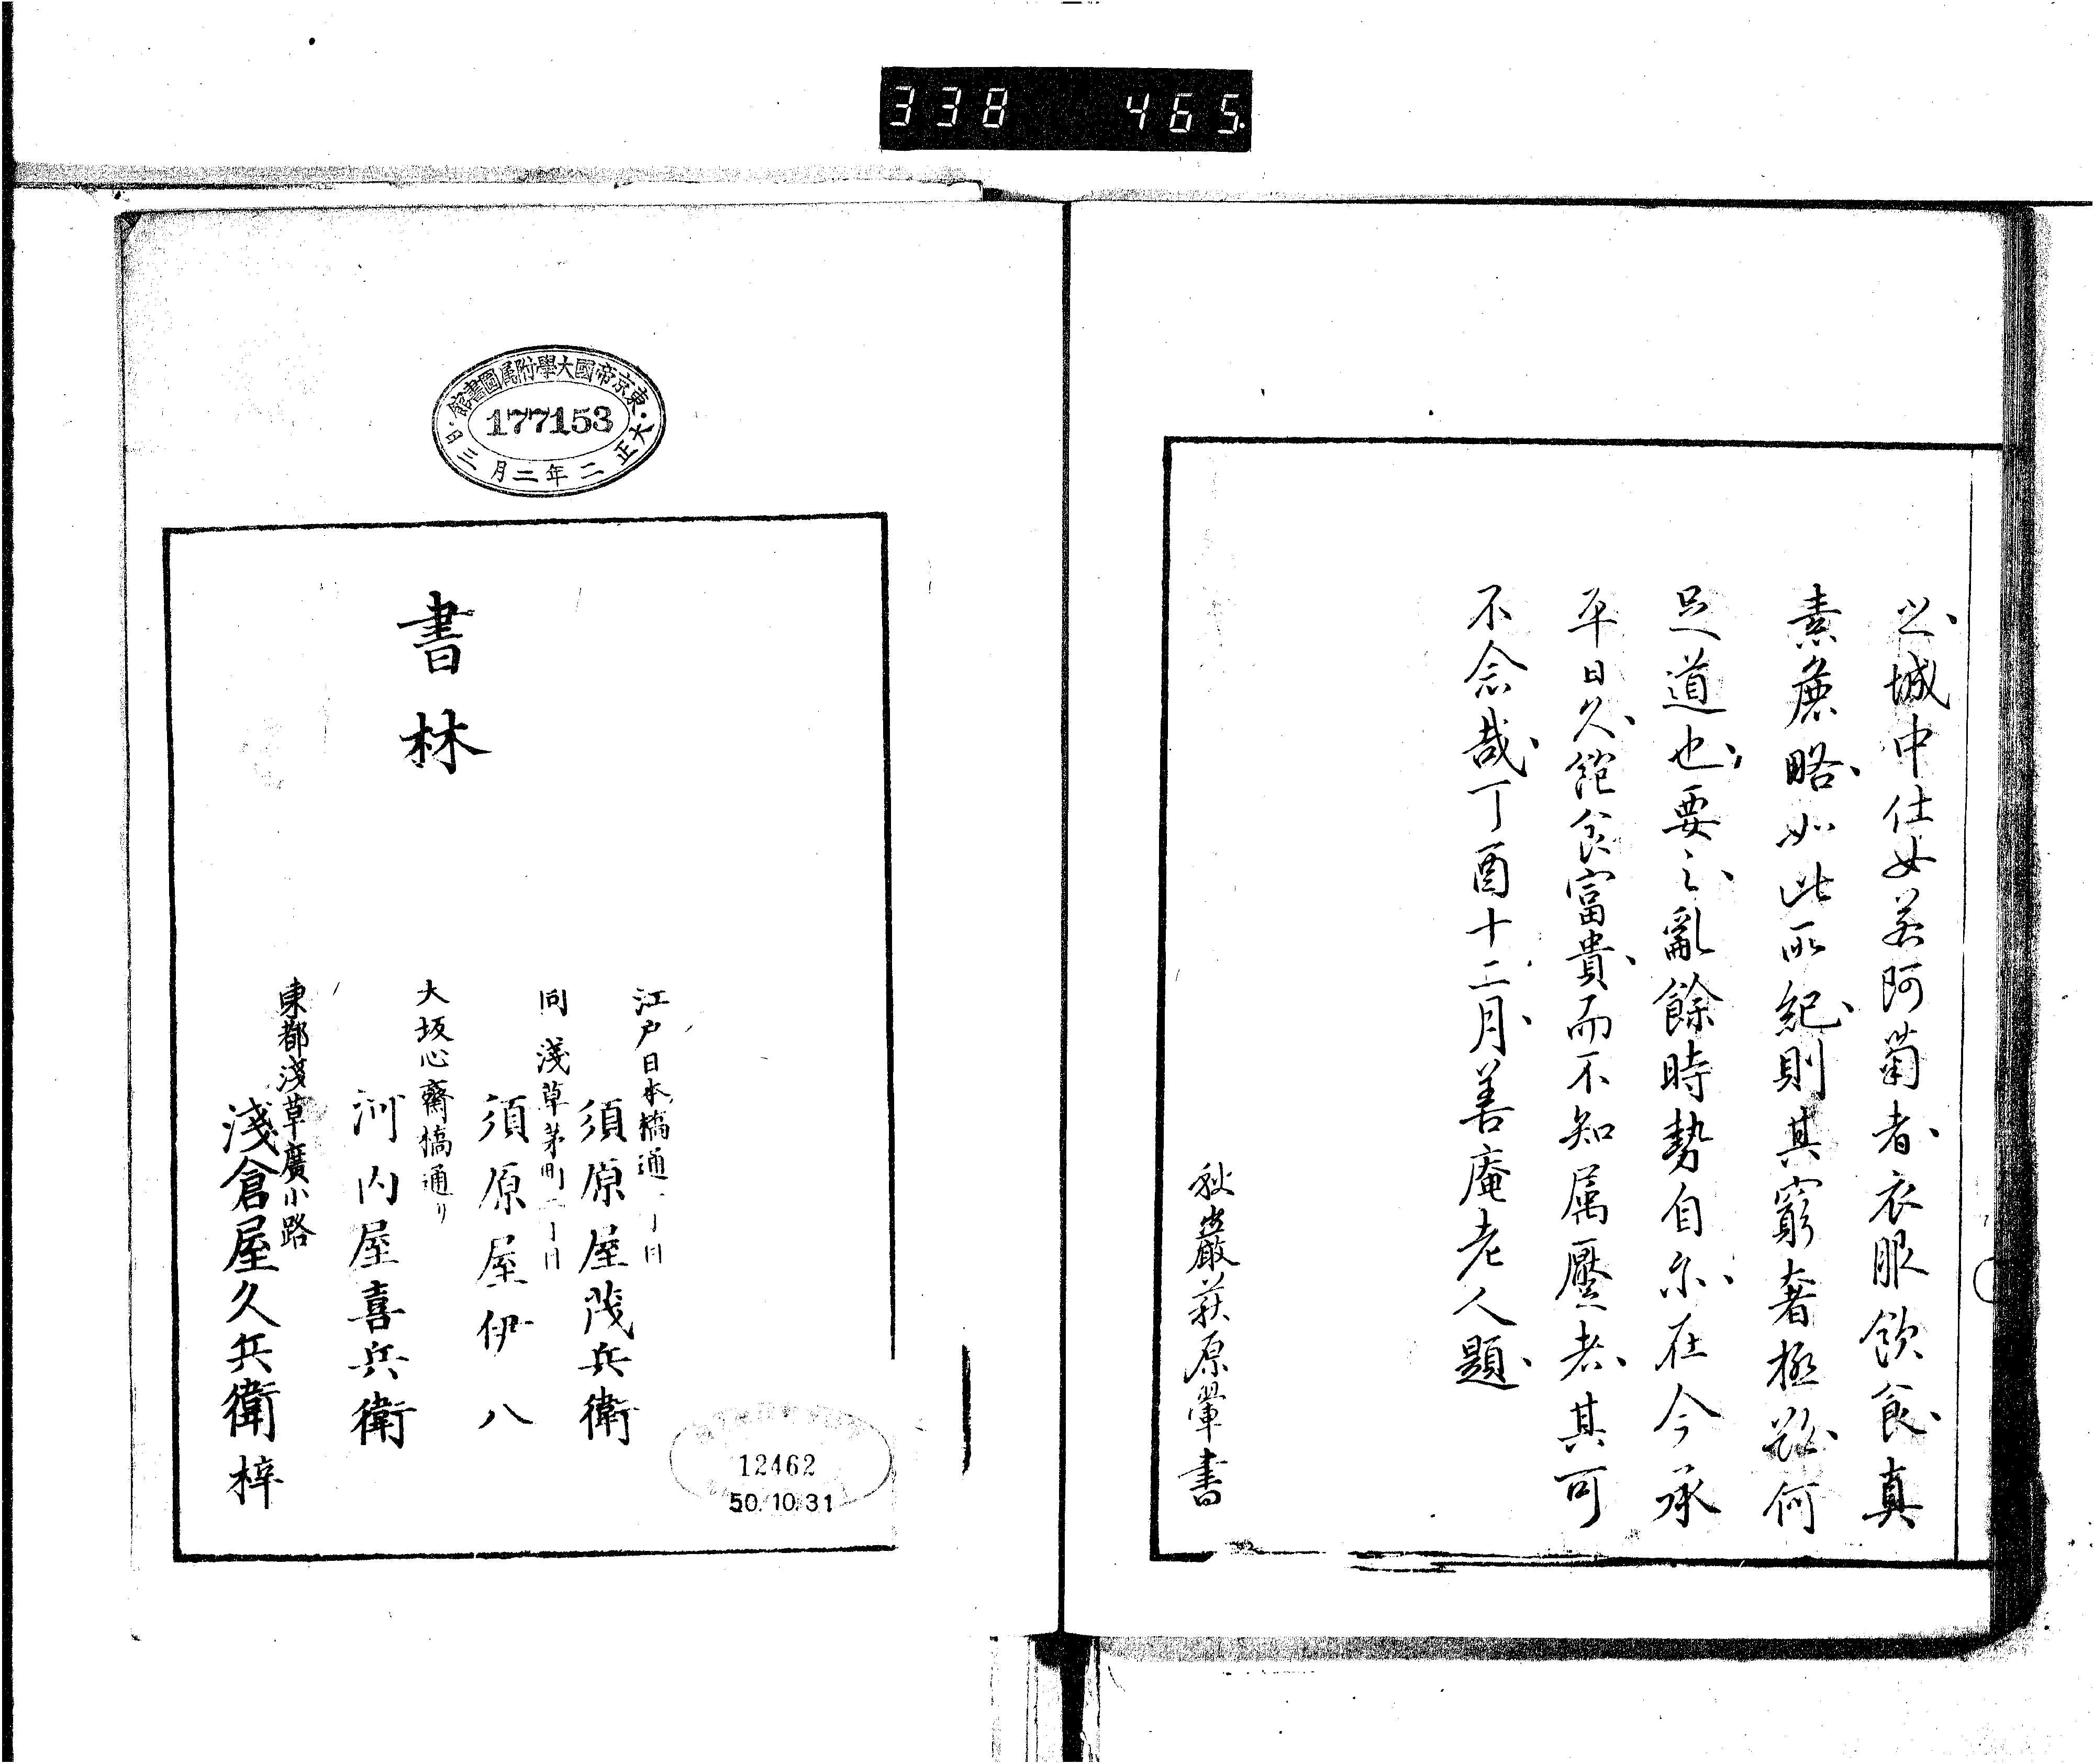 338 465
之城中仕女若阿菊者衣服飲食真
素麁略如此所紀則其窮奢極欲何
足道也要之亂餘時勢自尓在今承
平日久飽食富貴而不知属壓者其可
不念哉丁酉十二月善庵老人題
秋巖萩原翬書
東京帝國大學附属圖書館
177153
大正二年二月三日
書林
江戸日本橋通一丁目
須原屋茂兵衛
同浅草茅町二丁目
須原屋伊八
大坂心齋橋通リ
河内屋喜兵衛
東都淺草廣小路
淺倉屋久兵衛梓
12462
50.10.31